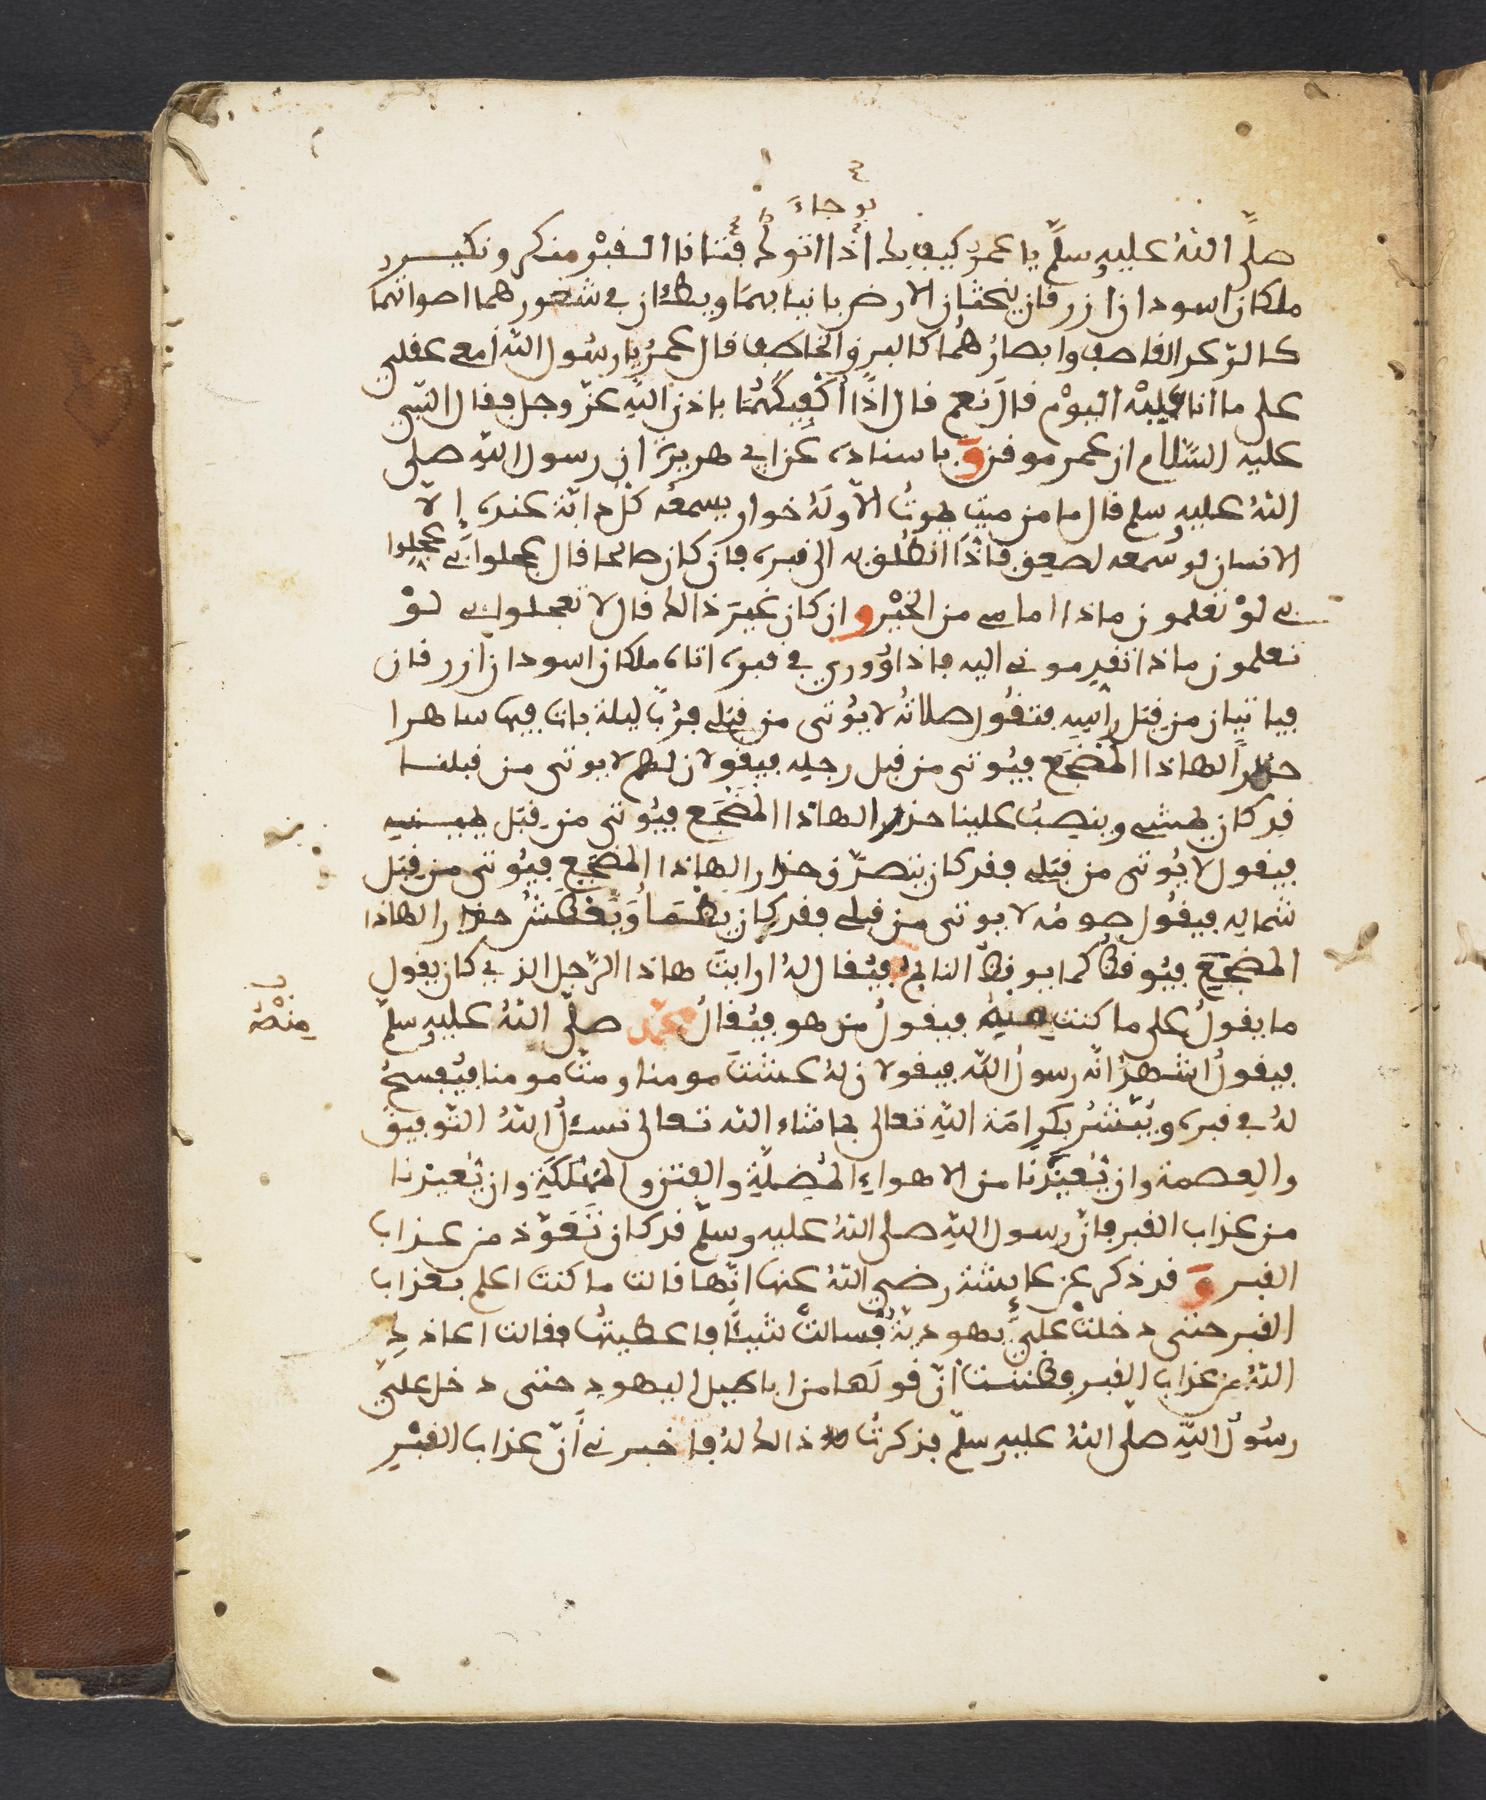 بو جاءَ
صلَّى اللهُ عليهِ وسلَّم يا عمر كيف بك اذا اتوك فتنا نا القبْرِ منكر ونكير
ملكان اسودان ازرقان يبحثان الارض بانيابهمَا ويطئان في شعورهما اصواتهما
كالرّعد القاصف وابصارُهُما كالبرق الخاطف قال عمرُ يا رسُول اللهِ أمعي عقلي
على ما انا عليْه اليوْم قالَ نعم قال اذًا أكْفِيكَهُمَا باذن اللهِ عزّ وجلّ فقال النبي
عليه السّلام ان عمر موفق وَباسناده عن ابي هريرة ان رسول اللهِ صلى
اللهُ عليهِ وسلم قال ما من ميت يموتُ الاّ ولهُ خوار يسمعُه كلّ دابّة عنده إلا
الانسان لو سمعه لصعق فاذا انطُلق به الى قبره فان كان صالحا قال عجلوا بي عجلوا
بي لوْ تعلمون ماذا امامي من الخيْر وان كان غيرَ ذالك قال لا تعجلوا بي لوْ
تعلمون ماذا تقدمونى اليه فاذا وُوري في قبره اتاه ملكان اسودان ازرقان
فياتيان من قِبَل راسِه فتقُول صلاتُه لا يُوتى من قِبَلي فرُبّ ليلة بات فيها ساهرا
حذرا لهاذا المضْجَع فيُوتى من قِبل رجليه فيقولان لهم لا يوتى من قبلنا
قد كان يمشي وينصبُ علينا حذرا لهاذا المضْجَع فيُوتى من قِبَل يمينه
فيقول لا يُوتى من قِبَلي فقد كان يتصدّق حذارا لهاذا المضْجَع فيُوتى من قِبَل
شماله فيقُول صومُه لا يوتى من قبلي فقد كان يظمَأُ ويَعْطشُ حذارا لهاذا
المضْجع فيُوقظُ كما يوقظُ النائم فيُقال لهُ ارايتَ هاذا الرّجل الذي كان يقول
ما يقولُ على ما كنت منه فيقولُ من هو فيُقالُ محمّد صلّى اللهُ عليهِ وسلّم
مِنْهُ
فيقولُ اشهدُ انّه رسولُ اللهِ فيقولان لهُ عشتَ مومنا ومتَّ مومنا فيُفسحُ
لهُ في قبره ويُنْشرُ بكرامَة اللهِ تعالى بما شاء الله تعالى نسئلُ اللهَ التوفيق
والعصمة وان يُعيذَنا من الاهواءِ المُضِلّةِ والفتن والمُهْلكَةِ وان يُعيذنا
من عذاب القبر فانّ رسول اللهِ صلى اللهُ عليه وسلّم قد كان تَعَوّذ من عذاب
القبر وَقد ذكر عن عايشة رضي اللهُ عنها انّها قالت ما كنت اعلم بعذاب
القبر حتى دخلتْ عليّ يهوديّةٌ فسالتْ شيئًا فاعطيتُها فقالت اعاذك
اللهُ من عذاب القبر فظننتُ انّ قولَها من اباطيل اليهود حتى دخل عليّ
رسُولُ اللهِ صلّى اللهُ عليهِ وسلّم فذكرتُ ذالك لهُ فاخبرنى أنّ عذاب القبْر